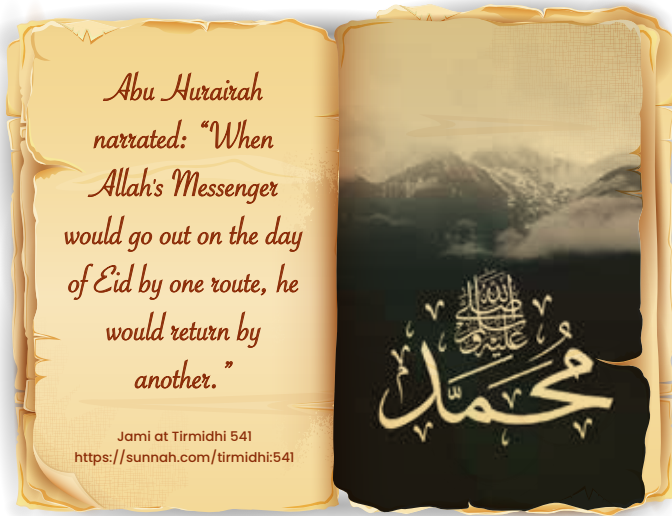 Abu Hurairah
narrated: “When
Allah's Messenger
would go out on the day
of Eid by one route, he
would return by
another.”
Jami at Tirmidhi 541
https://sunnah.com/tirmidhi:541
صلى الله عليه وسلم
محمد